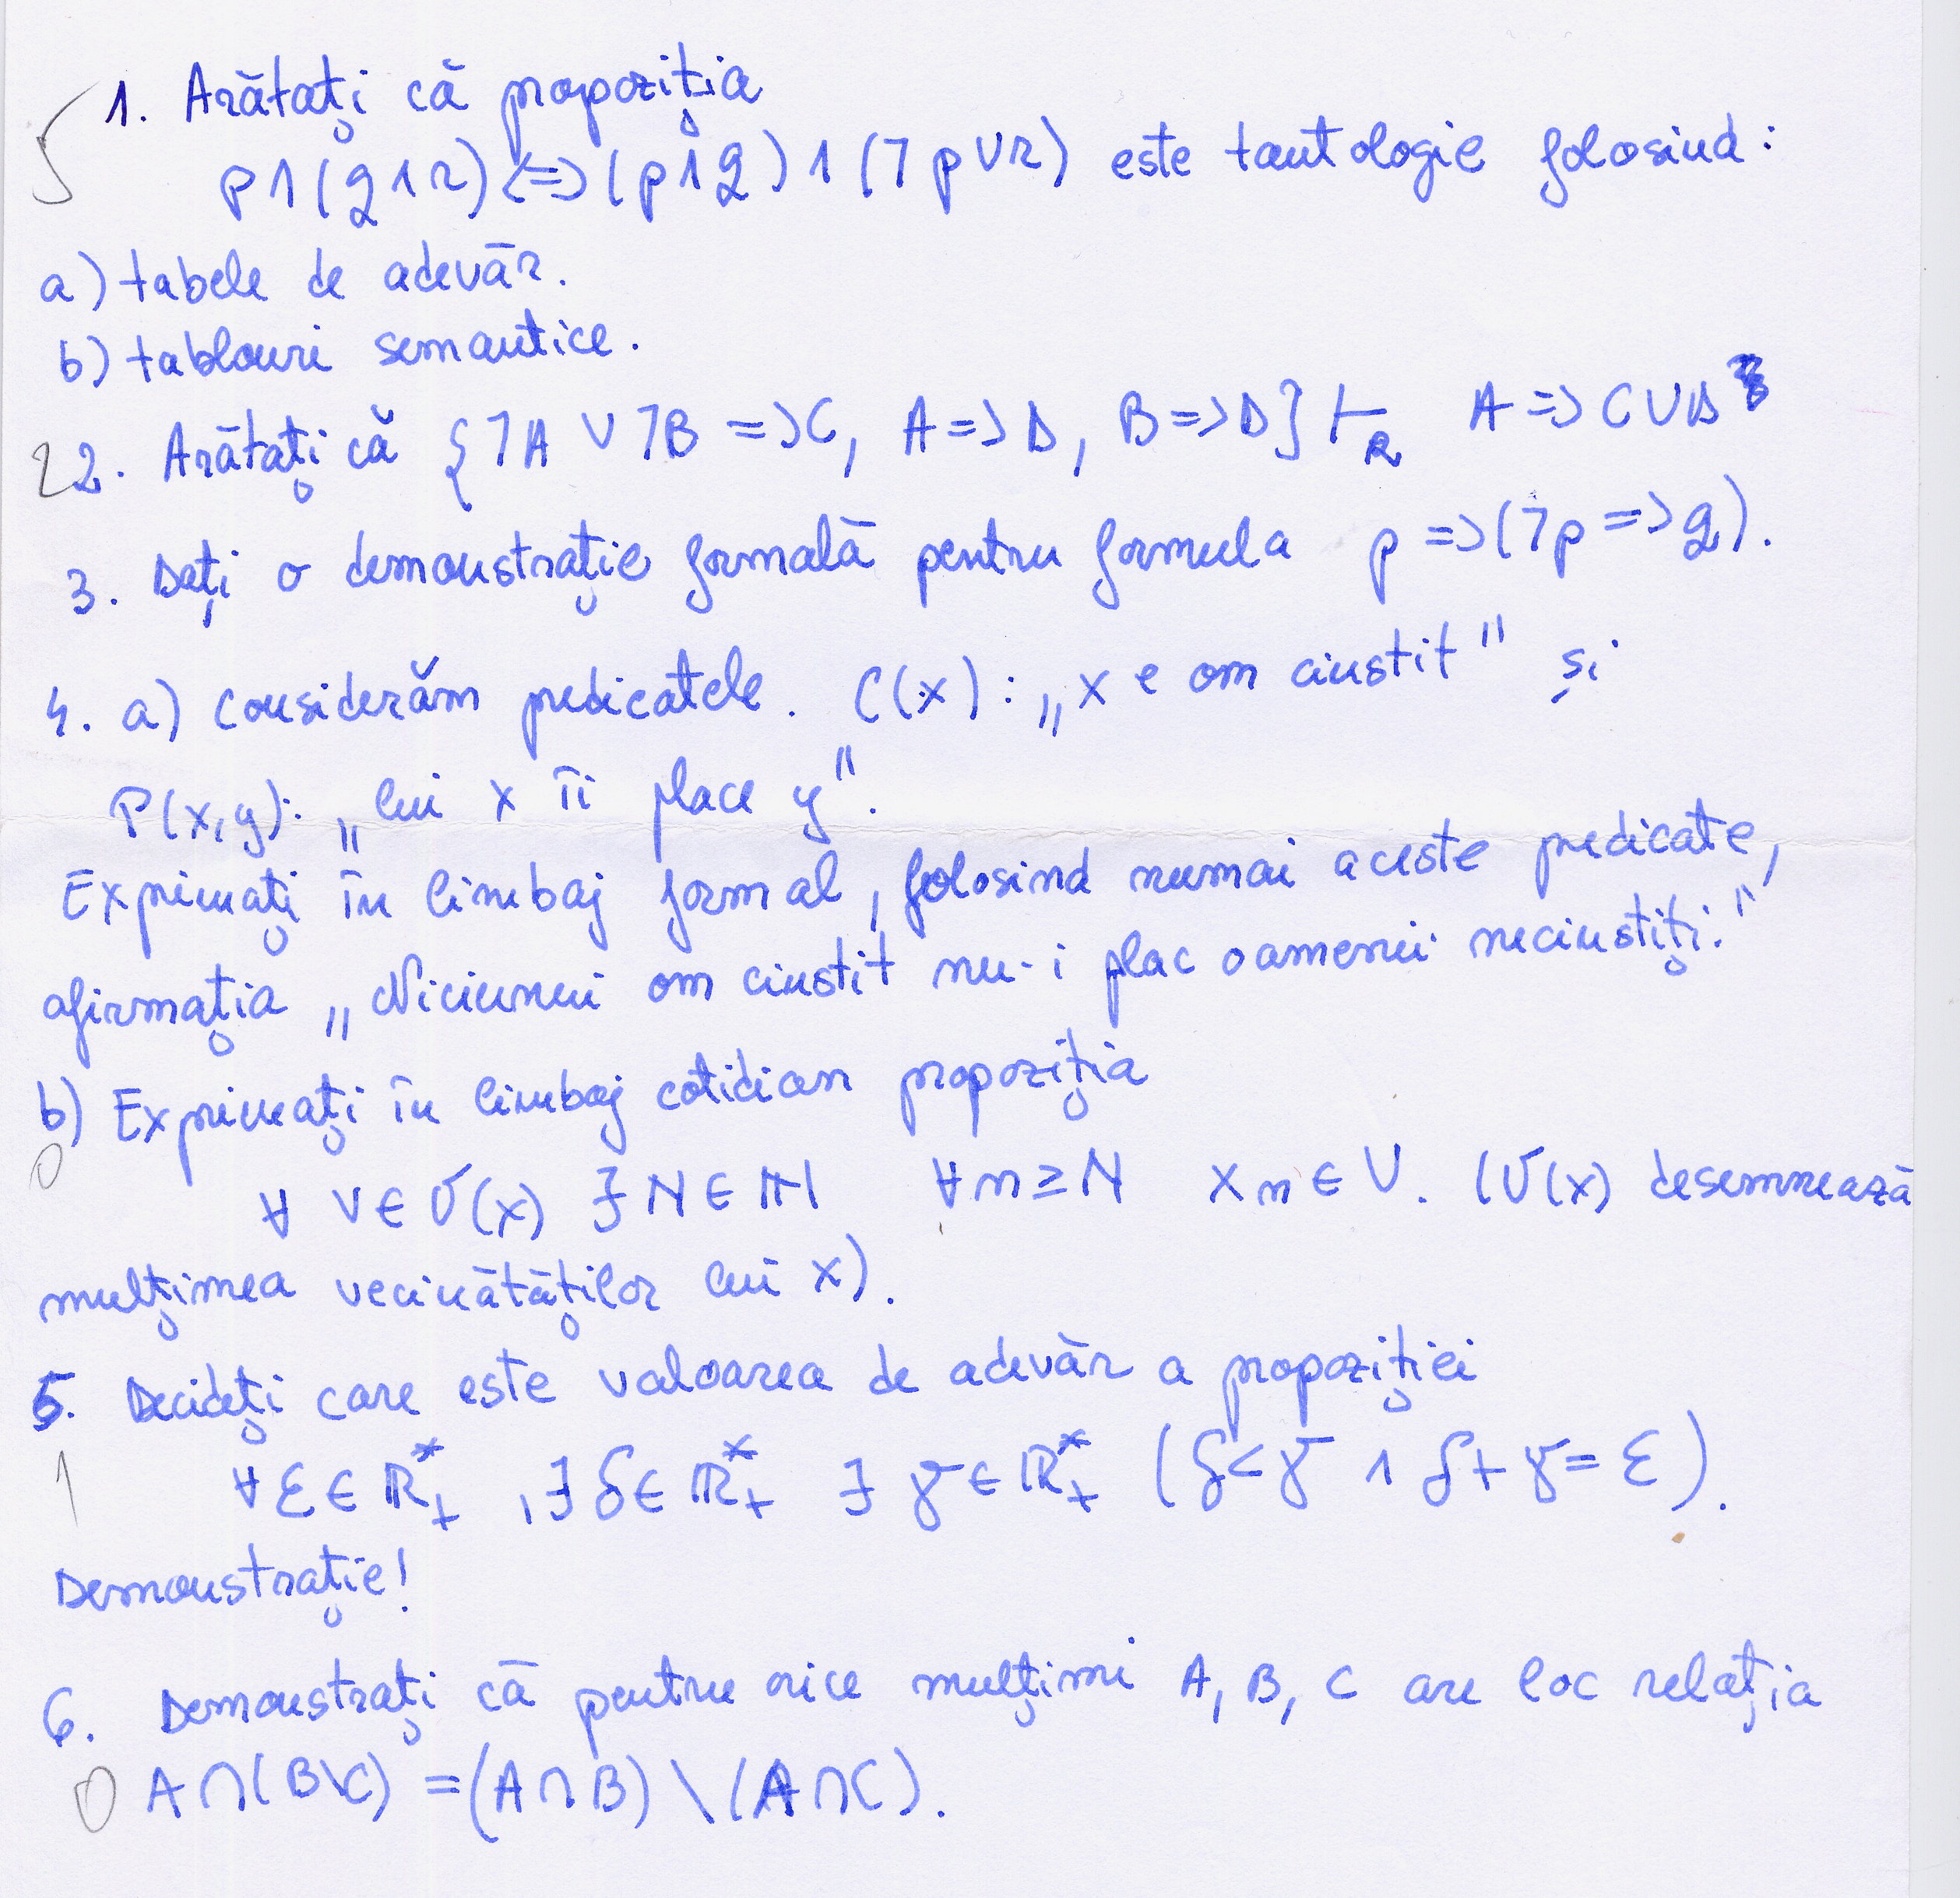 5 1. Arătați că propoziția
p∧(q∧r)<=>(p∧q)∧(¬p∨r) este tautologie folosind:
a) tabele de adevăr.
b) tablouri semantice.
2 2. Arătați că {¬A ∨ ¬B => C, A => D, B => D} ⊢R A => C∨D
3. Dați o demonstrație formală pentru formula p =>(¬p => q).
4. a) Considerăm predicatele. C(x): „x e om cinstit" și
P(x,y): „lui x îi place y".
Exprimați în limbaj formal, folosind numai aceste predicate,
afirmația „Niciunui om cinstit nu-i plac oamenii necinstiți."
b) Exprimați în limbaj cotidian propoziția
0 ∀ V∈ 𝒱(x) ∃ N ∈ ℕ ∀n≥N xn ∈ V. (𝒱(x) desemnează
mulțimea vecinătăților lui x).
5. Decideți care este valoarea de adevăr a propoziției
1 ∀ε∈ ℝ*+ , ∃ δ∈ ℝ*+ ∃ γ∈ℝ*+ (δ<γ ∧ δ+γ= ε).
Demonstrație!
6. Demonstrați că pentru orice mulțimi A, B, C are loc relația
0 A∩(B\C) =(A∩B) \ (A∩C).